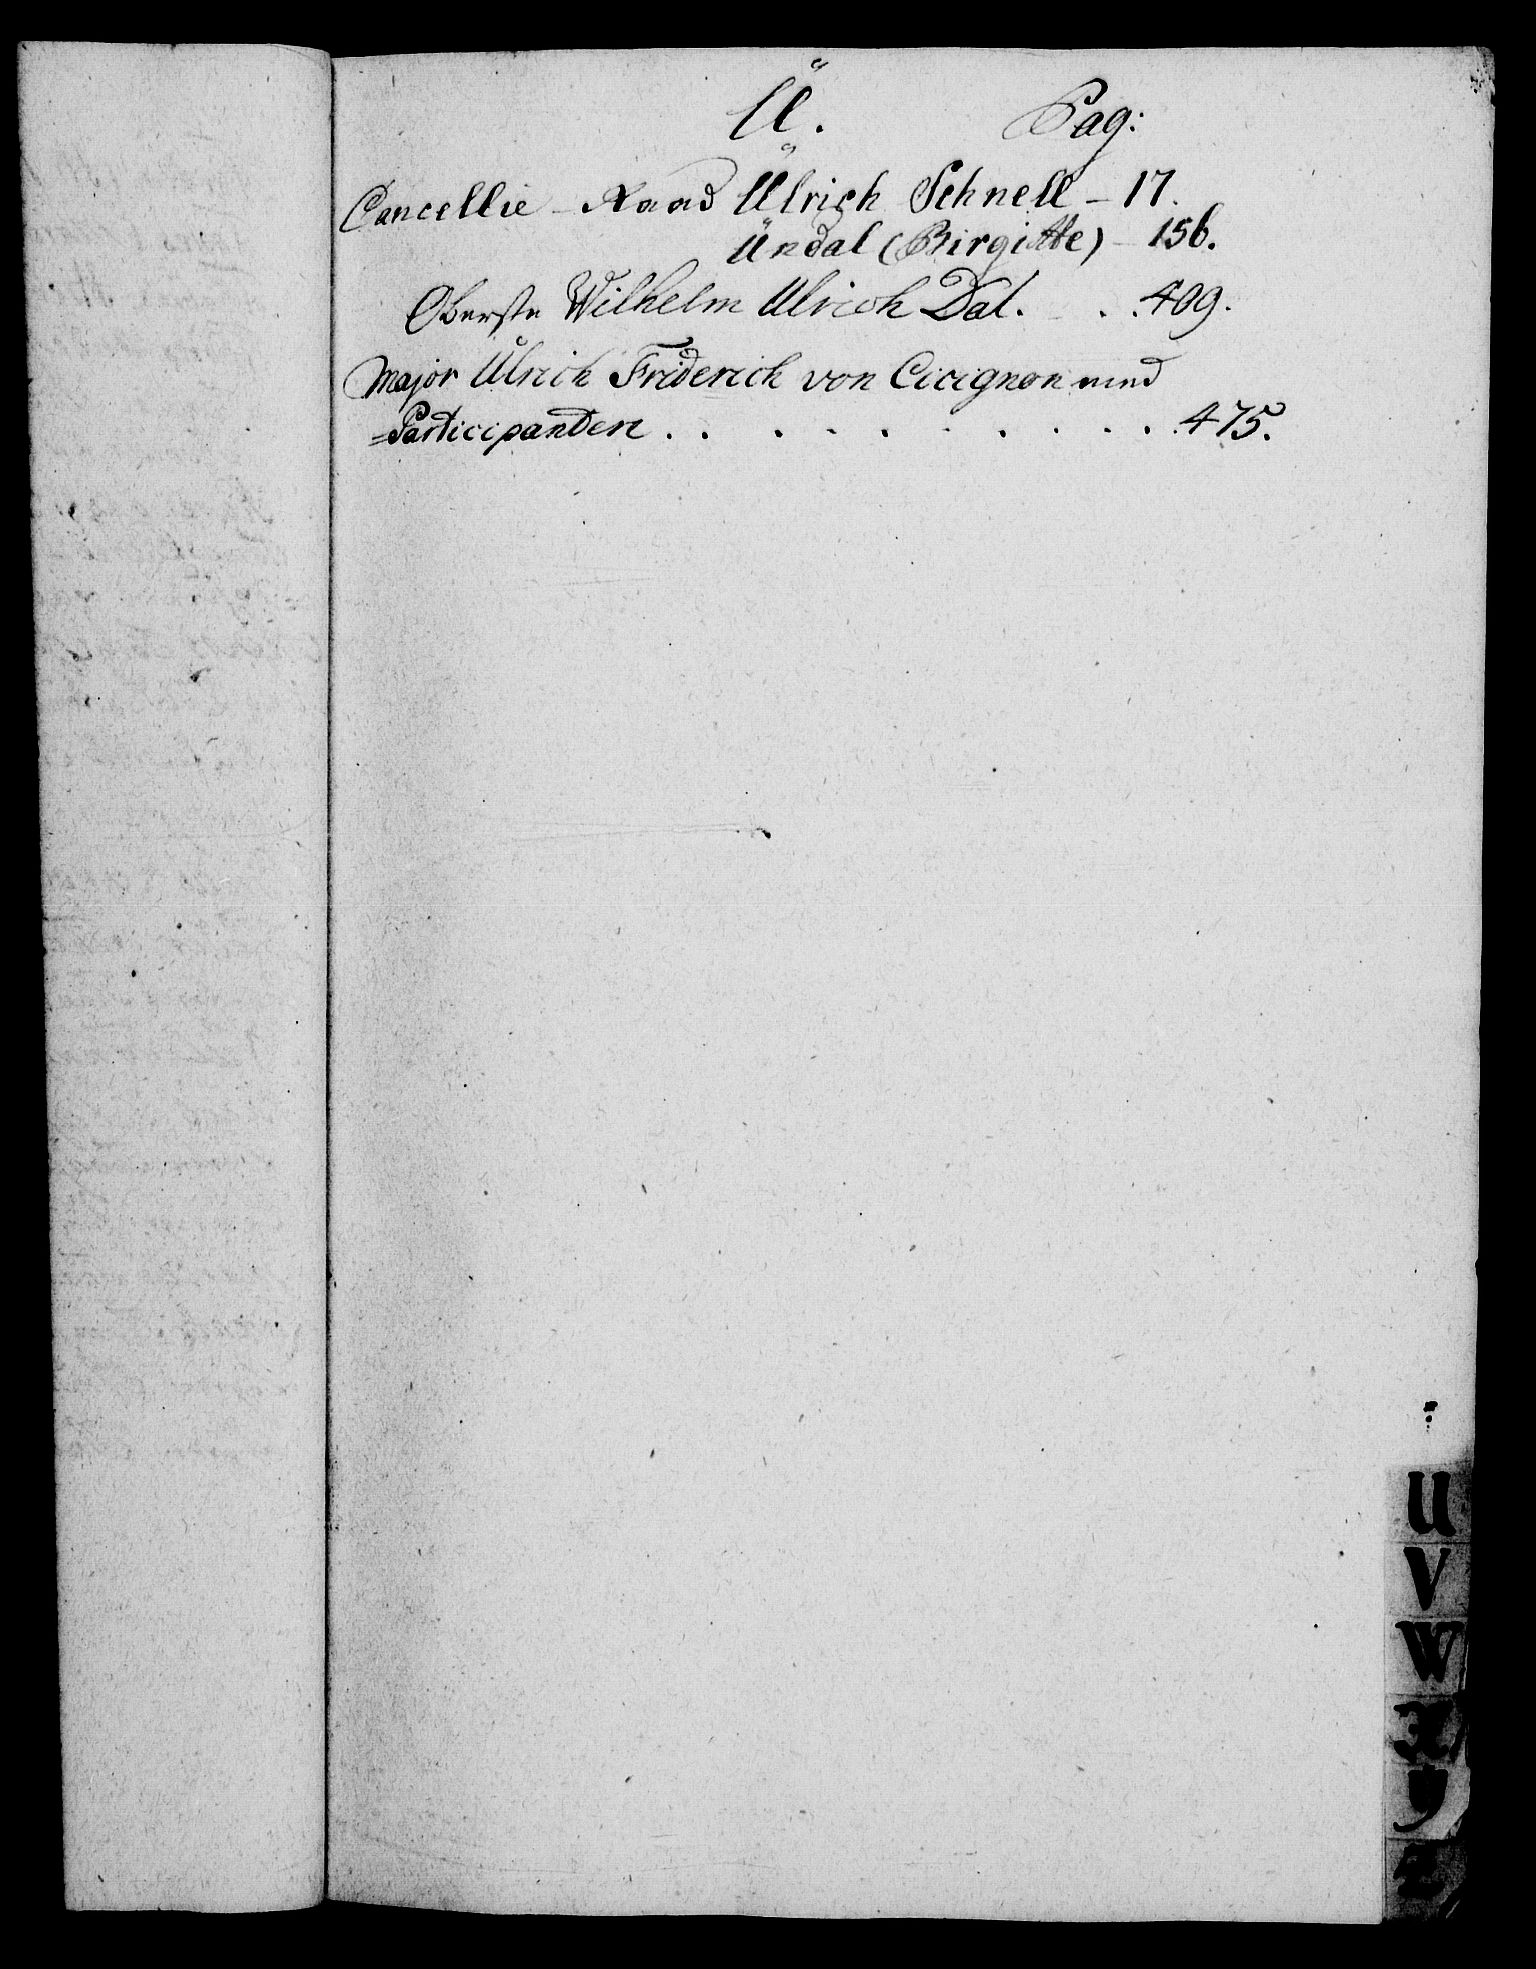 Ü. Pag:
Cancellie-Raad Ülrich Schnell - 17.
Ündal (Birgitte) - 156.
Oberste Wilhelm Ulrich Dal. . . 409.
Major Ulrich Friderich von Cicignon med
=Participanter . . . . . . . . . . . 475.
U
V
W
X
Y
Z